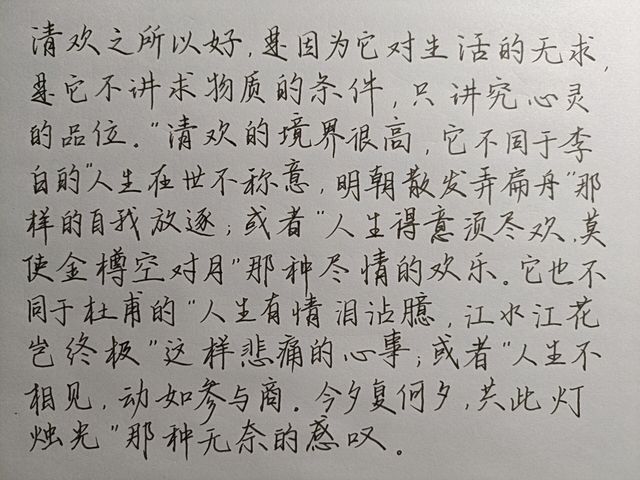 清欢之所以好，是因为它对生活的无求，
是它不讲求物质的条件，只讲究心灵
的品位。"清欢的境界很高，它不同于李
白的"人生在世不称意，明朝散发弄扁舟"那
样的自我放逐；或者"人生得意须尽欢，莫
使金樽空对月"那种尽情的欢乐。它也不
同于杜甫的"人生有情泪沾臆，江水江花
岂终极"这样悲痛的心事；或者"人生不
相见，动如参与商。今夕复何夕，共此灯
烛光"那种无奈的感叹。